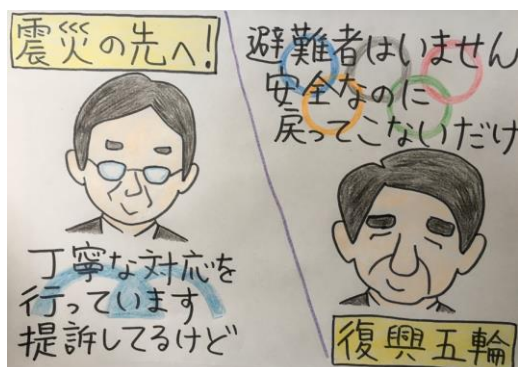 震災の先へ！
丁寧な対応を
行っています
提訴してるけど
避難者はいません
安全なのに
戻ってこないだけ
復興五輪